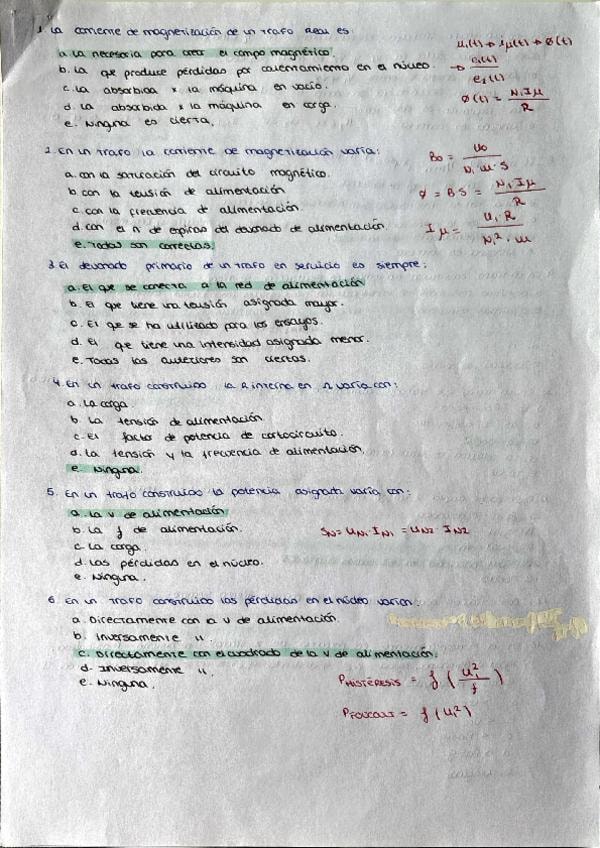 1. La corriente de magnetización de un trafo Real es:
a. La necesaria para crear el campo magnético.
b. La que produce pérdidas por calentamiento en el núcleo.
c. La absorbida x la máquina en vacío.
d. La absorbida x la máquina en carga.
e. Ninguna es cierta.
u₁(t) → iμ(t) → Φ(t)
→ e₁(t) / e₂(t)
Φ(t) = N₁Iμ / R
2. En un trafo la corriente de magnetización varía:
a. con la saturación del circuito magnético.
b. con la tensión de alimentación
c. con la frecuencia de alimentación.
d. con el n de espiras del devanado de alimentación.
e. Todas son correctas.
B₀ = U₀ / N₁·w·S
Φ = B S = N₁Iμ / R
Iμ = U₁·R / N₁²·w
3. El devanado primario de un trafo en servicio es siempre:
a. El que se conecta a la red de alimentación
b. El que tiene una tensión asignada mayor.
c. El qe se ha utilizado para los ensayos.
d. El que tiene una intensidad asignada menor.
e. Todas las anteriores son ciertas.
4. En un trafo construido la R interna en Ω varía con:
a. La carga.
b. La tensión de alimentación.
c. El factor de potencia de cortocircuito.
d. La tensión y la frecuencia de alimentación.
e. Ninguna.
5. En un trafo construido la potencia asignada varía con:
a. La v de alimentación
b. La f de alimentación.
c. La carga.
d. Las pérdidas en el núcleo.
e. Ninguna.
SN = UN1 IN1 = UN2 · IN2
6. En un trafo construido las pérdidas en el núcleo varían:
a. Directamente con la v de alimentación.
b. Inversamente "
c. Directamente con el cuadrado de la v de alimentación.
d. Inversamente ".
e. Ninguna.
PHISTÉRESIS = f (U₁² / f)
PFOUCAULT = f (U₁²)